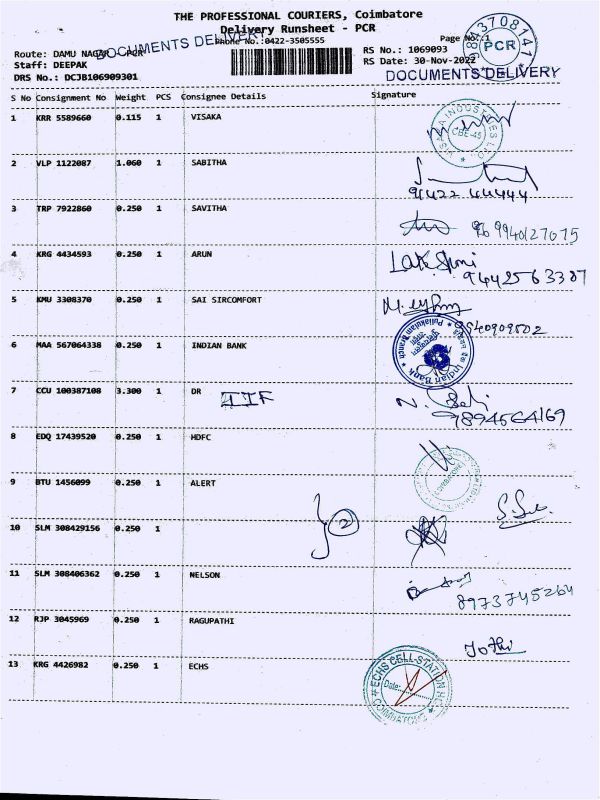 THE PROFESSIONAL COURIERS, Coimbatore
Delivery Runsheet - PCR
Phone No.:0422-3505555
Page No.:1
Route: DAMU NAGAR - PCR
DOCUMENTS DELIVERY
RS No.: 1069093
Staff: DEEPAK
RS Date: 30-Nov-2022
DRS No.: DCJB106909301
PCR
9843708141
DOCUMENTS DELIVERY
S No Consignment No Weight PCS Consignee Details Signature
1 KRR 5589660 0.115 1 VISAKA
VISAKA INDUSTRIES LTD CBE-45
2 VLP 1122087 1.060 1 SABITHA
94422 44444
3 TRP 7922860 0.250 1 SAVITHA
9940127075
4 KRG 4434593 0.250 1 ARUN
Lakshmi
9442563387
5 KMU 3308370 0.250 1 SAI SIRCOMFORT
9540909502
6 MAA 567064338 0.250 1 INDIAN BANK
Indian Bank Puliakulam Branch
7 CCU 100387108 3.300 1 DR IIF
9894564169
8 EDQ 17439520 0.250 1 HDFC
COIMBATORE
9 BTU 1456099 0.250 1 ALERT
2
10 SLM 308429156 0.250 1
11 SLM 308406362 0.250 1 NELSON
8973745264
12 RJP 3045969 0.250 1 RAGUPATHI
Jothi
13 KRG 4426982 0.250 1 ECHS
ECHS CELL-STATION H.Q.
Date:
COIMBATORE